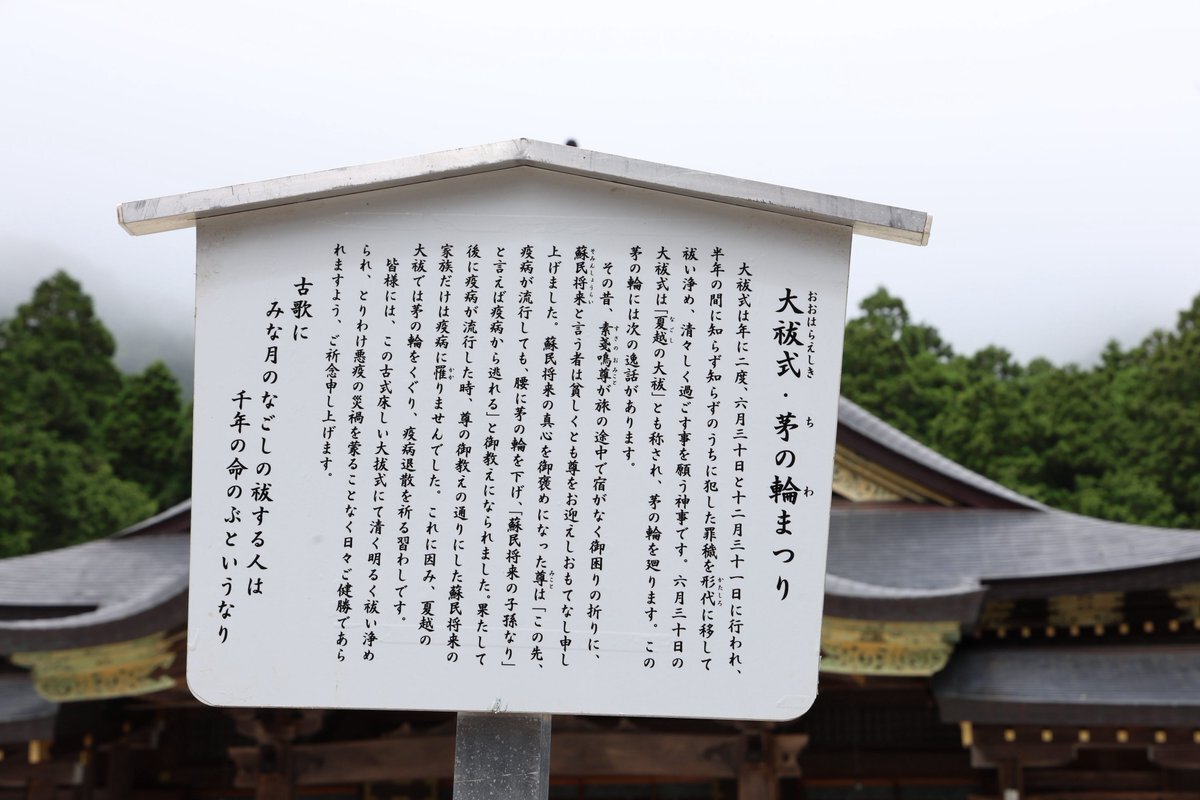 大祓式・茅の輪まつり
大祓式は年に二度、六月三十日と十二月三十一日に行われ、
半年の間に知らず知らずのうちに犯した罪穢を形代に移して
祓い浄め、清々しく過ごす事を願う神事です。六月三十日の
大祓式は「夏越の大祓」とも称され、茅の輪を廻ります。この
茅の輪には次の逸話があります。
その昔、素戔嗚尊が旅の途中で宿がなく御困りの折りに、
蘇民将来と言う者は貧しくとも尊をお迎えしおもてなし申し
上げました。蘇民将来の真心を御褒めになった尊は「この先、
疫病が流行しても、腰に茅の輪を下げ、「蘇民将来の子孫なり」
と言えば疫病から逃れる」と御教えになられました。果たして
後に疫病が流行した時、尊の御教えの通りにした蘇民将来の
家族だけは疫病に罹りませんでした。これに因み、夏越の
大祓では茅の輪をくぐり、疫病退散を祈る習わしです。
皆様には、この古式床しい大祓式にて清く明るく祓い浄め
られ、とりわけ悪疫の災禍を蒙ることなく日々ご健勝であら
れますよう、ご祈念申し上げます。
古歌に
みな月のなごしの祓する人は
千年の命のぶというなり